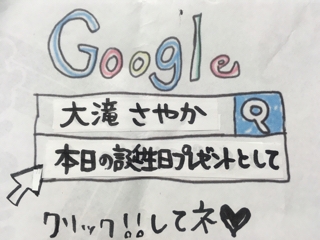 Google
大滝 さやか
本日の誕生日プレゼントとして
クリック!!してネ♥